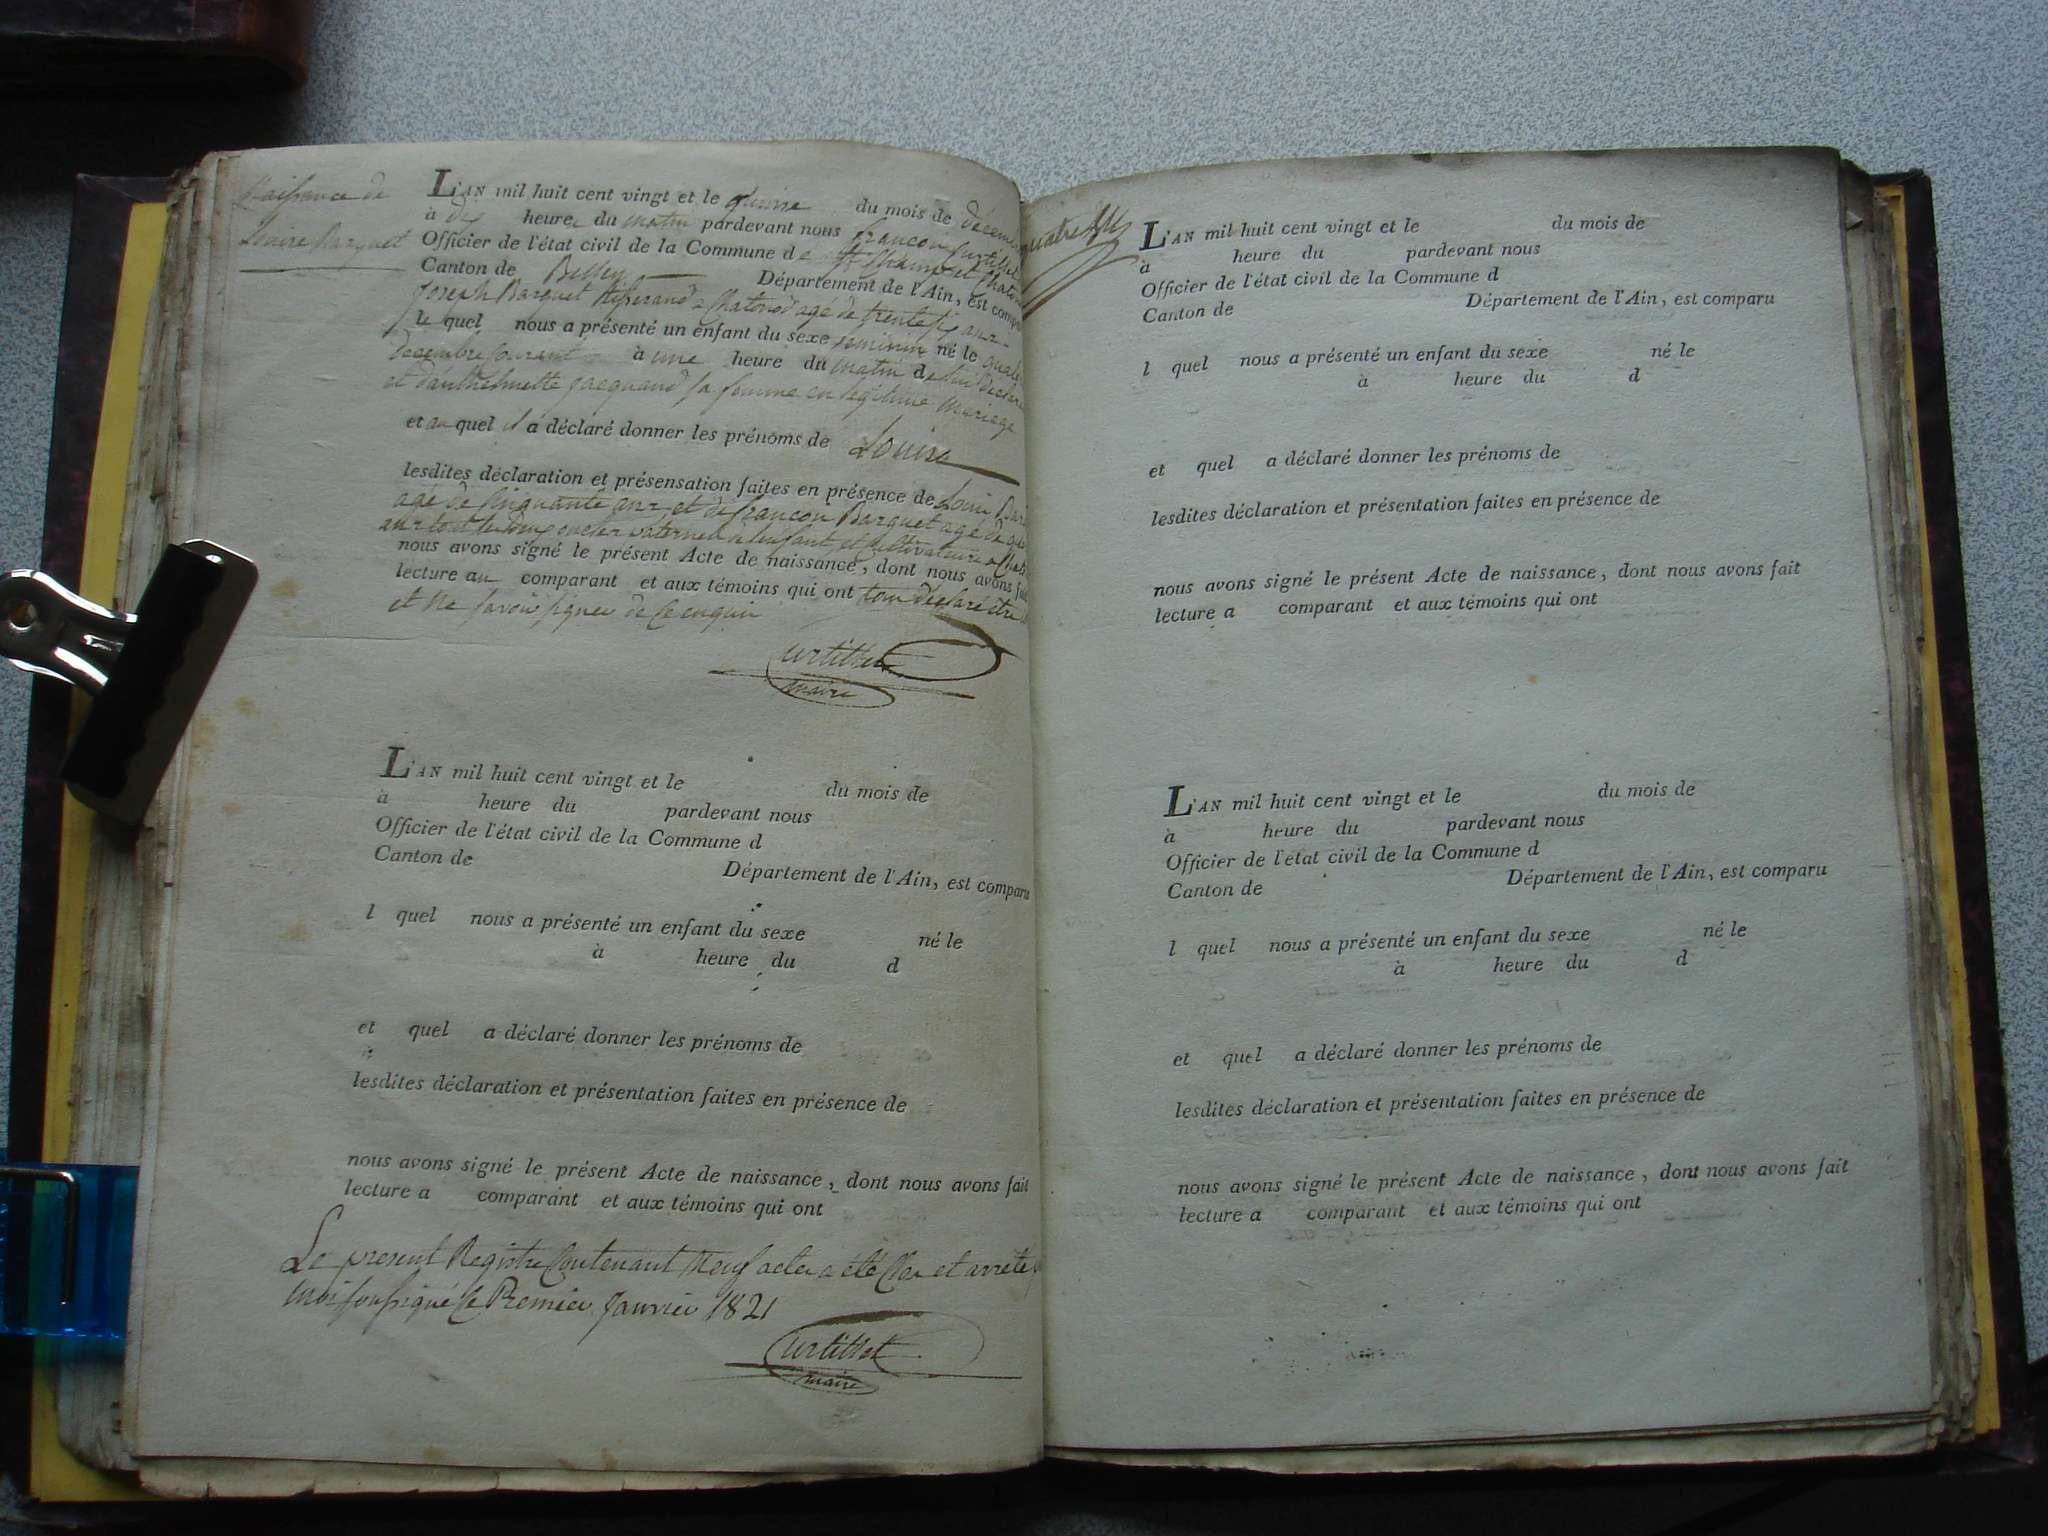 Naissance de
Louise Barquet
L'AN mil huit cent vingt et le quinze du mois de décem
à dix heures du matin pardevant nous françois Curtillet
Officier de l'état civil de la Commune de St Champ et Chatonod
Canton de Belley Département de l'Ain, est compa
Joseph Barquet à Chatonod agé de trente six ans
le quel nous a présenté un enfant du sexe feminin né le
decembre courant à une heure du matin de lui déclara
et d'anthelmette Jacquand sa femme en légitime mariage
et au quel il a déclaré donner les prénoms de Louise
lesdites déclaration et présensation faites en présence de Louis Bar
agé de cinquante ans et de françois Barquet agé de
ans tout les deux oncles paternel a l'enfant et cultivateurs a Chat
nous avons signé le présent Acte de naissance, dont nous avons fait
lecture au comparant et aux témoins qui ont tous déclaré
et Ne savoir signer de ce enquis
Curtillet
maire
L'AN mil huit cent vingt et le du mois de
à heure du pardevant nous
Officier de l'état civil de la Commune d
Canton de Département de l'Ain, est comparu
l quel nous a présenté un enfant du sexe né le
à heure du d
et quel a déclaré donner les prénoms de
lesdites déclaration et présentation faites en présence de
nous avons signé le présent Acte de naissance, dont nous avons fait
lecture a comparant et aux témoins qui ont
Le present Registre Contenant Neuf actes a été Clos et arrêté
moi soussigné le Premier Janvier 1821
Curtillet
maire
L'AN mil huit cent vingt et le du mois de
à heure du pardevant nous
Officier de l'état civil de la Commune d
Canton de Département de l'Ain, est comparu
l quel nous a présenté un enfant du sexe né le
à heure du d
et quel a déclaré donner les prénoms de
lesdites déclaration et présentation faites en présence de
nous avons signé le présent Acte de naissance, dont nous avons fait
lecture a comparant et aux témoins qui ont
L'AN mil huit cent vingt et le du mois de
à heure du pardevant nous
Officier de l'état civil de la Commune d
Canton de Département de l'Ain, est comparu
l quel nous a présenté un enfant du sexe né le
à heure du d
et quel a déclaré donner les prénoms de
lesdites déclaration et présentation faites en présence de
nous avons signé le présent Acte de naissance, dont nous avons fait
lecture a comparant et aux témoins qui ont